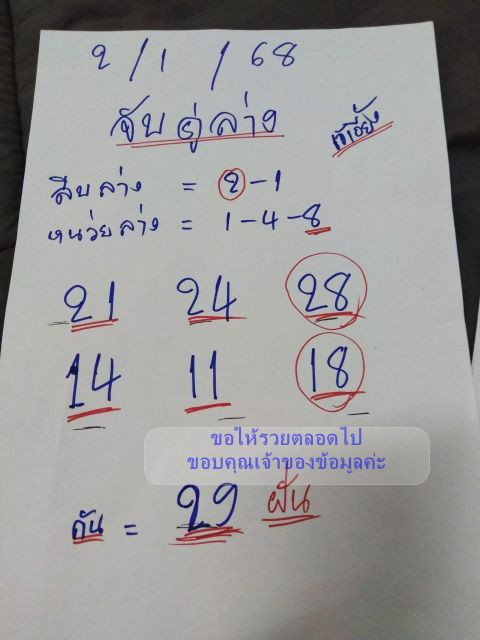 2/1/68
จับคู่ล่าง
เจ๊เอียง
สิบล่าง = 2-1
หน่วยล่าง = 1-4-8
21 24 28
14 11 18
ขอให้รวยตลอดไป
ขอบคุณเจ้าของข้อมูลค่ะ
กัน = 29 ฝัน